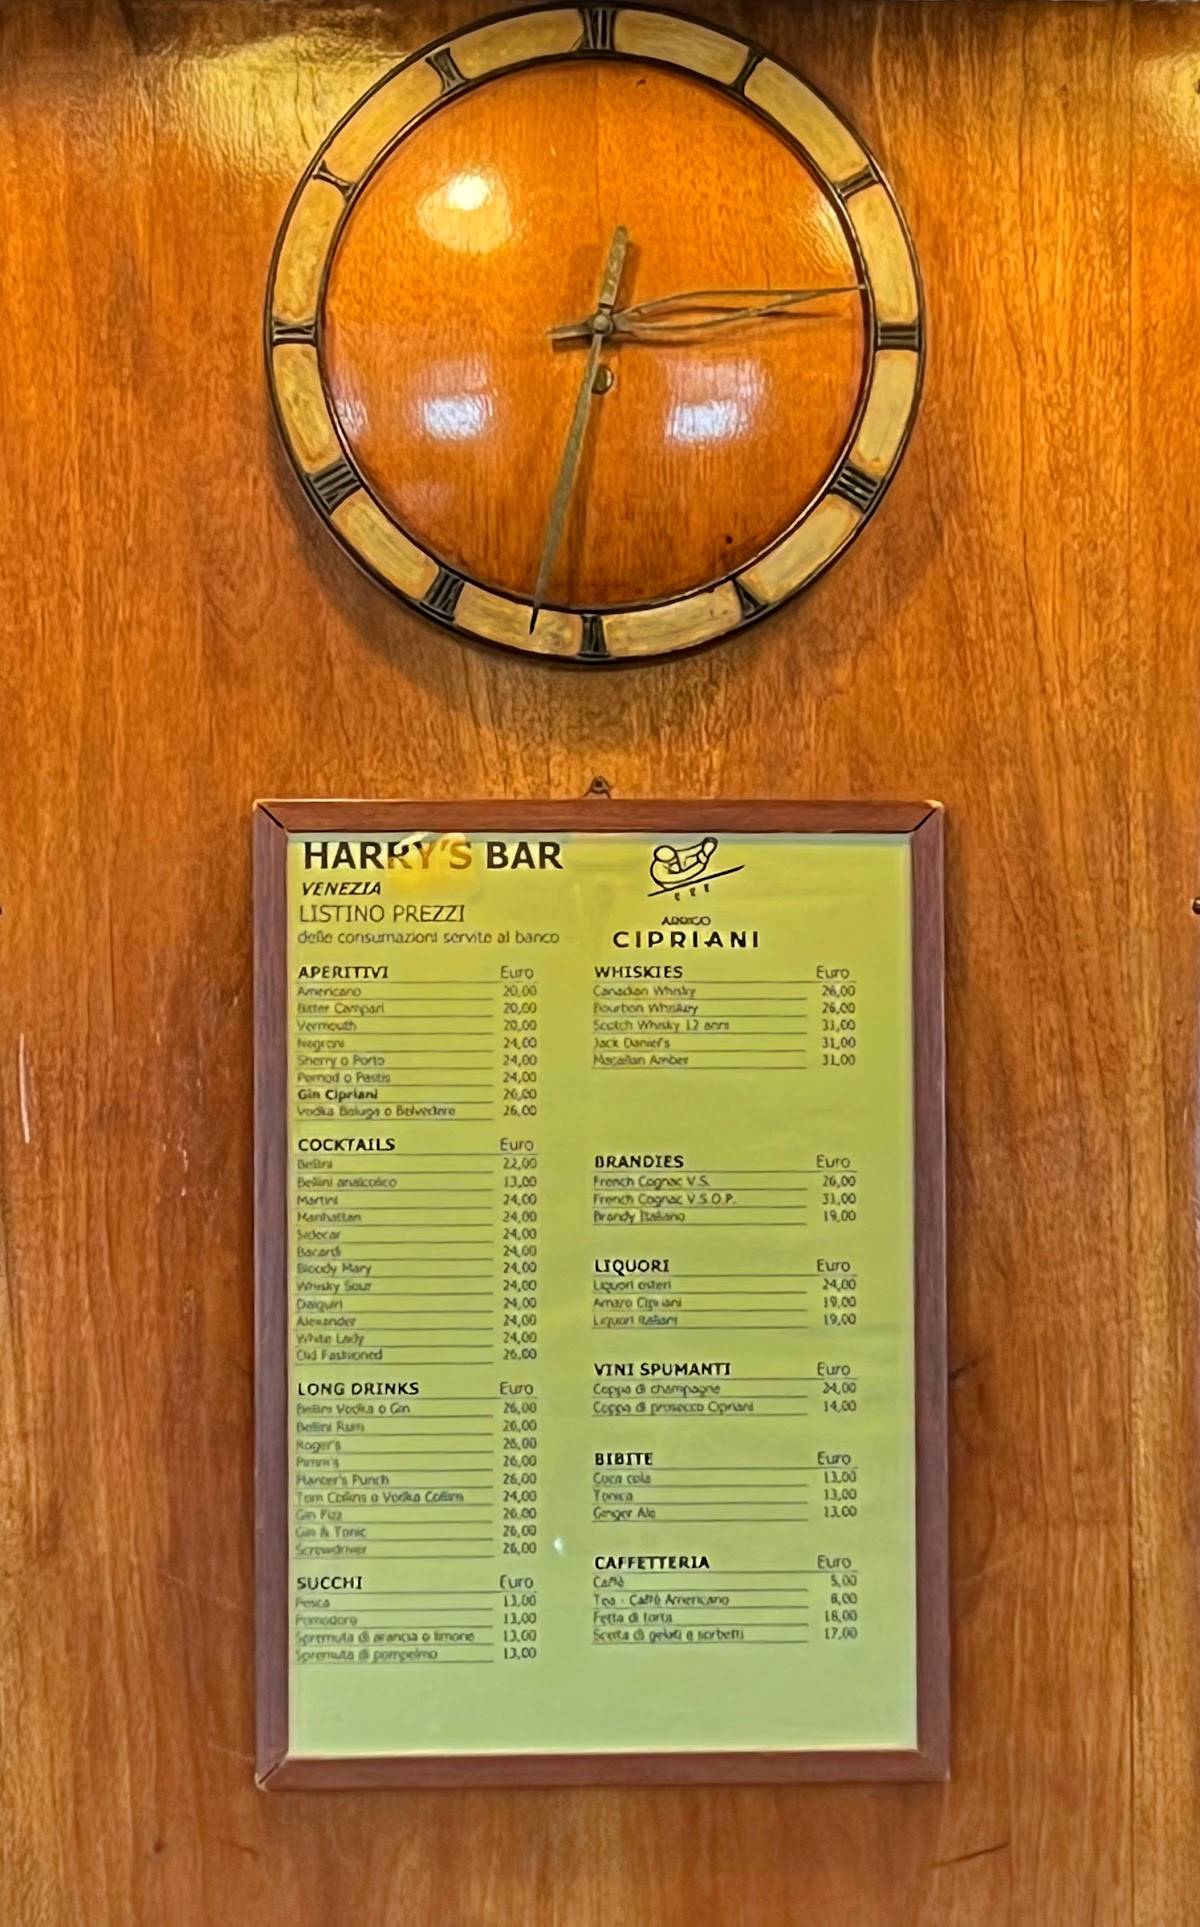 HARRY'S BAR
VENEZIA
LISTINO PREZZI
delle consumazioni servite al banco
ARRIGO
CIPRIANI
APERITIVI Euro
Americano 20,00
Bitter Campari 20,00
Vermouth 20,00
Negroni 24,00
Sherry o Porto 24,00
Pernod o Pastis 24,00
Gin Cipriani 26,00
Vodka Beluga o Belvedere 26,00
COCKTAILS Euro
Bellini 22,00
Bellini analcolico 13,00
Martini 24,00
Manhattan 24,00
Sidecar 24,00
Bacardi 24,00
Bloody Mary 24,00
Whisky Sour 24,00
Daiquiri 24,00
Alexander 24,00
White Lady 24,00
Old Fashioned 26,00
LONG DRINKS Euro
Bellini Vodka o Gin 26,00
Bellini Rum 26,00
Roger's 26,00
Pimm's 26,00
Planter's Punch 26,00
Tom Collins o Vodka Collins 24,00
Gin Fizz 26,00
Gin & Tonic 26,00
Screwdriver 26,00
SUCCHI Euro
Pesca 13,00
Pomodoro 13,00
Spremuta di arancia o limone 13,00
Spremuta di pompelmo 13,00
WHISKIES Euro
Canadian Whisky 26,00
Bourbon Whiskey 26,00
Scotch Whisky 12 anni 31,00
Jack Daniel's 31,00
Macallan Amber 31,00
BRANDIES Euro
French Cognac V.S. 26,00
French Cognac V.S.O.P. 31,00
Brandy Italiano 19,00
LIQUORI Euro
Liquori esteri 24,00
Amaro Cipriani 19,00
Liquori Italiani 19,00
VINI SPUMANTI Euro
Coppa di champagne 24,00
Coppa di prosecco Cipriani 14,00
BIBITE Euro
Coca cola 13,00
Tonica 13,00
Ginger Ale 13,00
CAFFETTERIA Euro
Caffè 5,00
Tea - Caffè Americano 8,00
Fetta di torta 18,00
Scelta di gelati e sorbetti 17,00